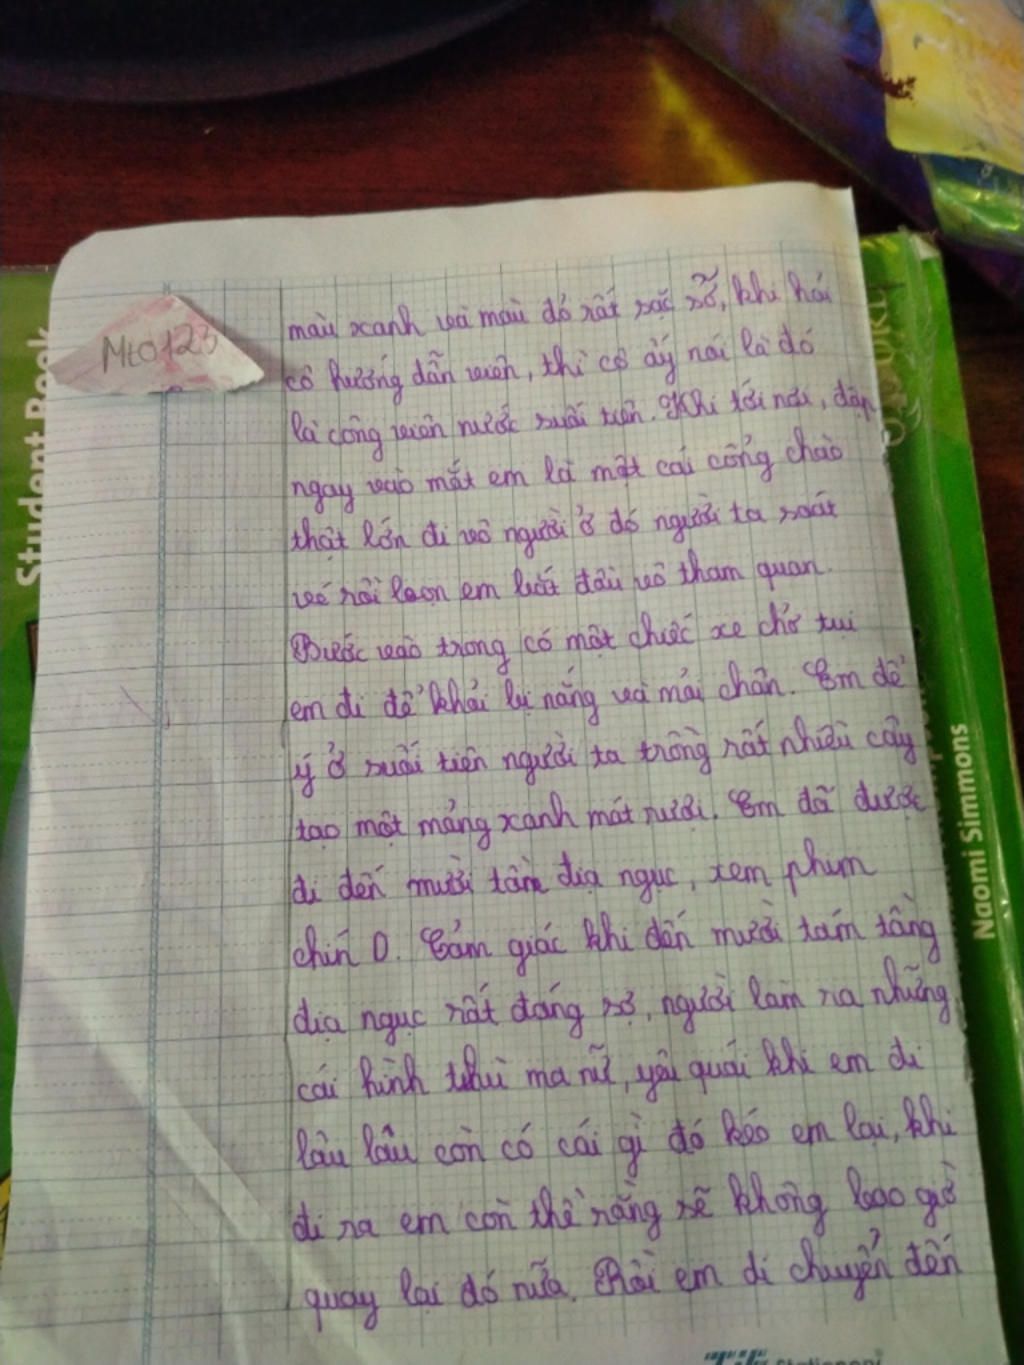 Student Book
Mt0123
màu xanh và màu đỏ rất sặc sỡ, khi hỏi
cô hướng dẫn viên, thì cô ấy nói là đó
là công viên nước suối tiên. Khi tới nơi, đập
ngay vào mắt em là một cái cổng chào
thật lớn đi vô người ở đó người ta soát
vé rồi em bắt đầu vô tham quan.
Bước vào trong có một chiếc xe chở tui
em đi để khỏi bị nắng và mỏi chân. Em để
ý ở suối tiên người ta trồng rất nhiều cây
tạo một mảng xanh mát rượi. Em đã được
đi đến mười tầng địa ngục, xem phim
chín D. Cảm giác khi đến mười tám tầng
địa ngục rất đáng sợ, người làm ra những
cái hình thù ma nữ, yêu quái khi em đi
lâu lâu còn có cái gì đó kéo em lại, khi
đi ra em còn thề rằng sẽ không bao giờ
quay lại đó nữa. Rồi em di chuyển đến
Naomi Simmons